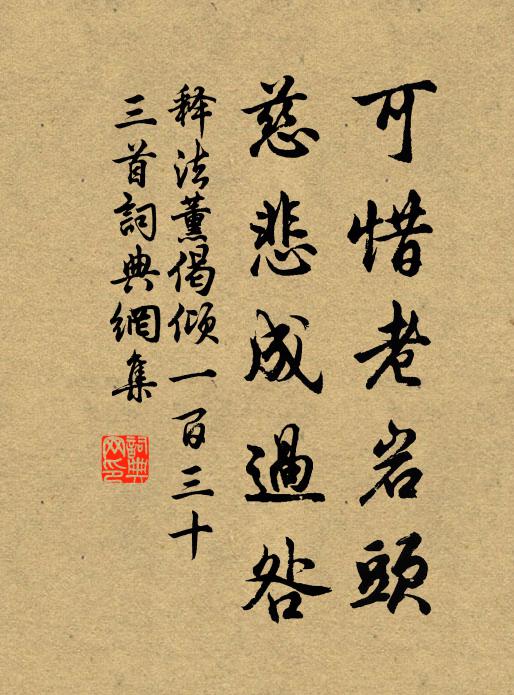 可惜老岩頭
慈悲成過咎
释法薰偈傾一百三十
三首詞典網集
詞典网印